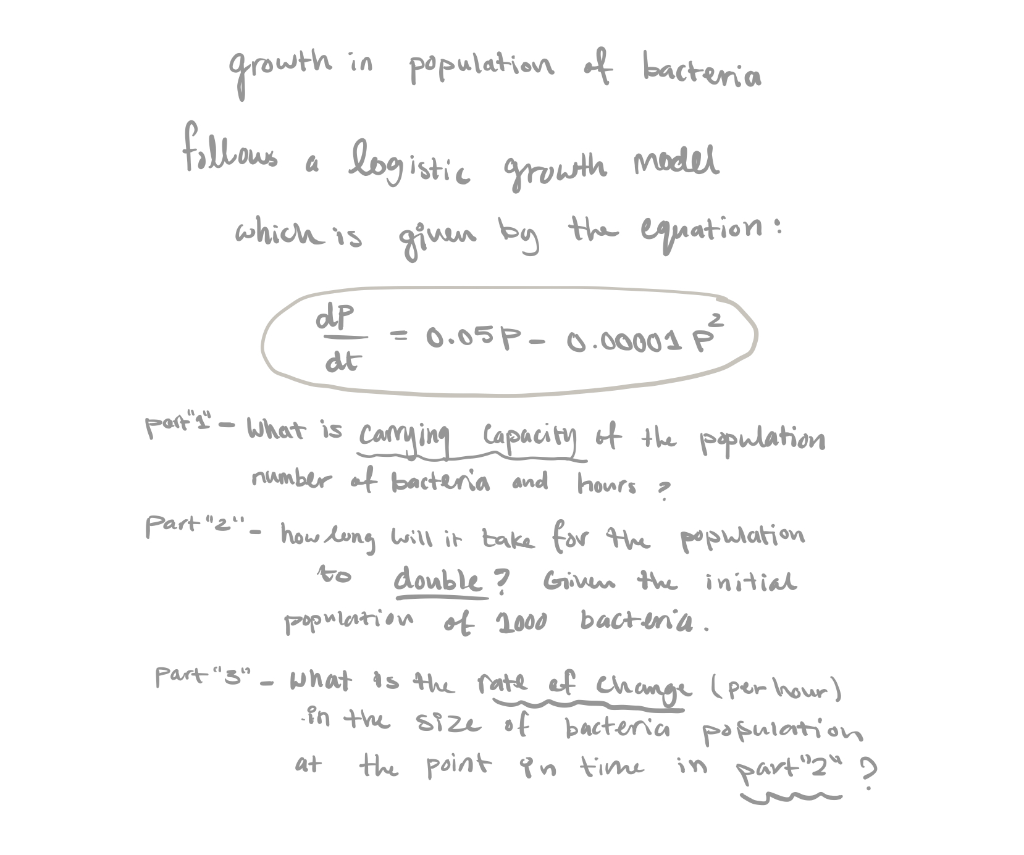 growth in population of bacteria
follows a logistic growth model
which is given by the equation:
dP/dt = 0.05P - 0.00001 P²
part "1" - What is carrying capacity of the population
number of bacteria and hours ?
Part "2" - how long will it take for the population
to double ? Given the initial
population of 1000 bacteria.
Part "3" - What is the rate of change (per hour)
in the size of bacteria population
at the point in time in part "2" ?